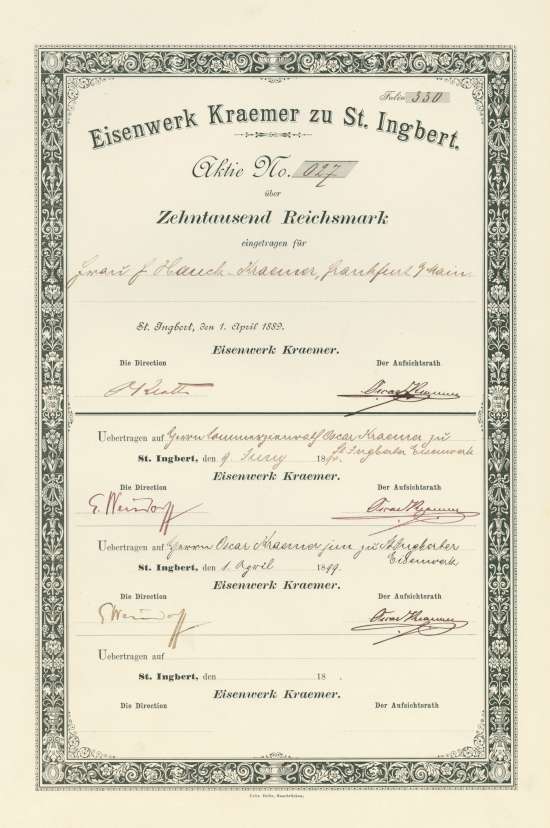 Folio 330
Eisenwerk Kraemer zu St. Ingbert.
Aktie No. 027
über
Zehntausend Reichsmark
eingetragen für
Frau J Hauck-Kraemer, Frankfurt a/Main.
St. Ingbert, den 1. April 1889.
Eisenwerk Kraemer.
Die Direction Der Aufsichtsrath
Oscar Kraemer
Uebertragen auf Herrn Commerzienrath Oscar Kraemer zu
St. Ingberter Eisenwerk
St. Ingbert, den 9 Juny 189
Eisenwerk Kraemer.
Die Direction Der Aufsichtsrath
E. Weisdorff Oscar Kraemer
Uebertragen auf Herrn Oscar Kraemer jun zu St Ingberter
Eisenwerk
St. Ingbert, den 1. April 1899.
Eisenwerk Kraemer.
Die Direction Der Aufsichtsrath
E Weisdorff Oscar Kraemer
Uebertragen auf
St. Ingbert, den 18 .
Eisenwerk Kraemer.
Die Direction Der Aufsichtsrath